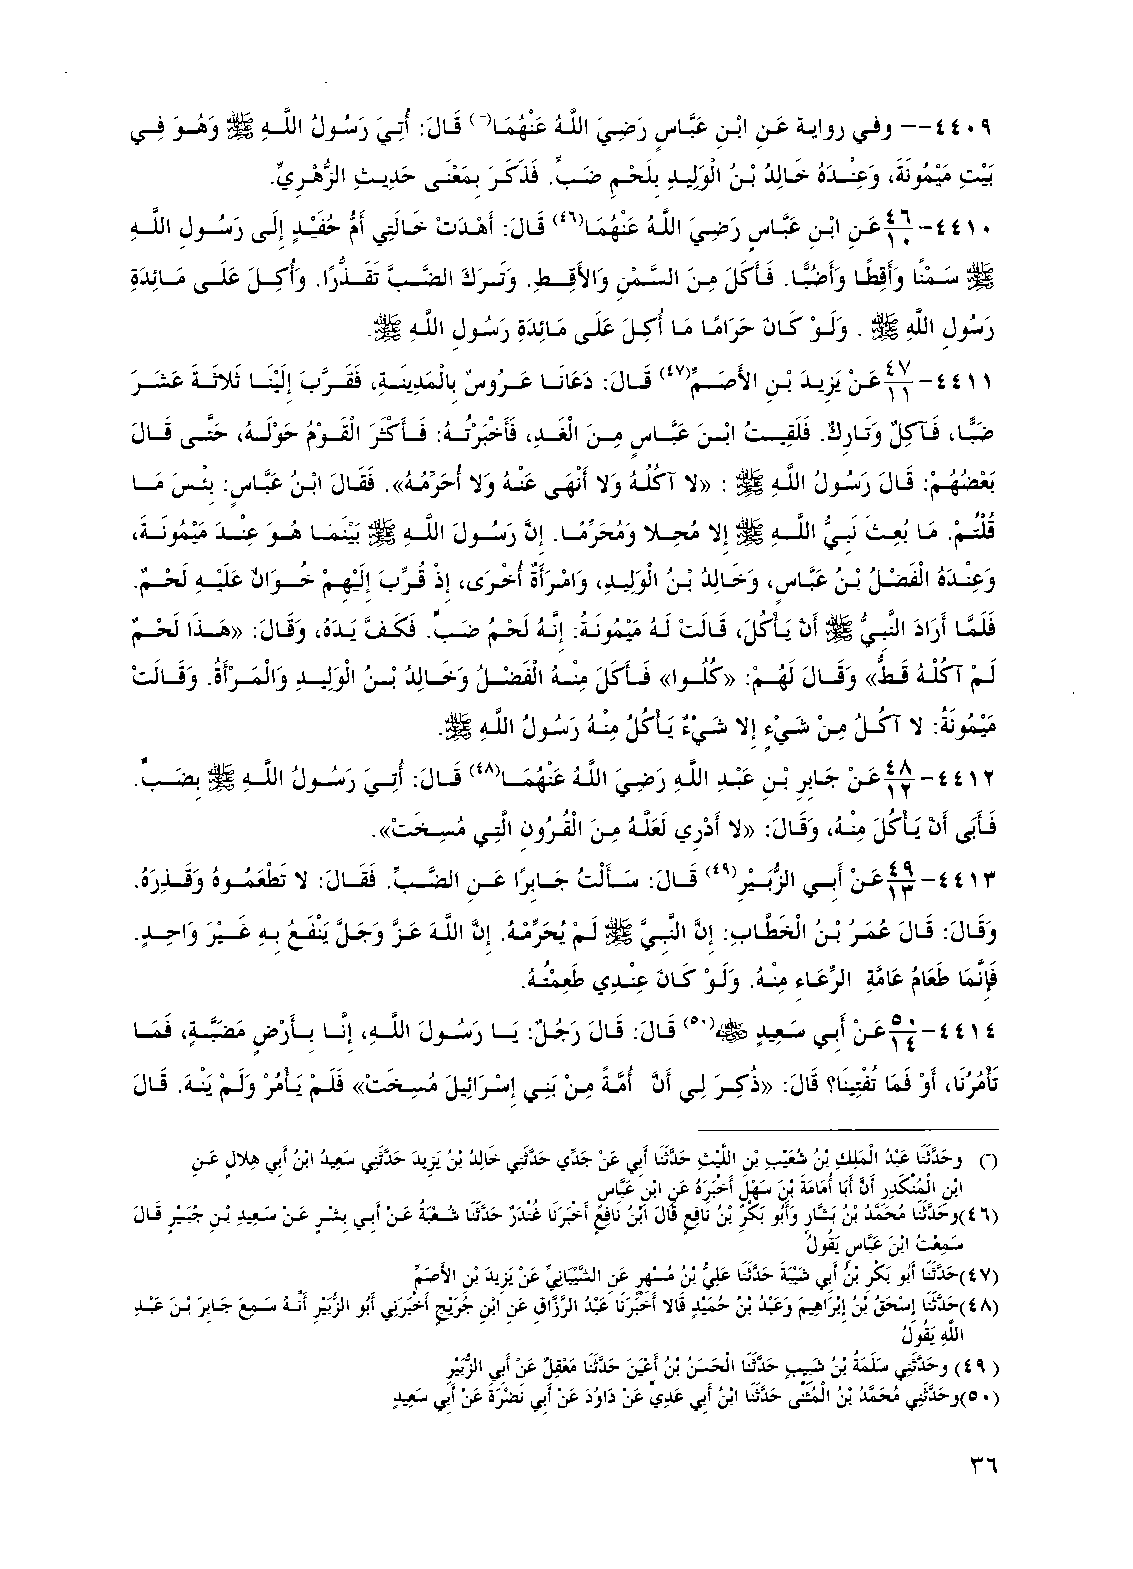 ٤٤٠٩ -- وفي رواية عَنِ ابْنِ عَبَّاسٍ رَضِيَ اللَّهُ عَنْهُمَا(-) قَالَ: أُتِيَ رَسُولُ اللَّهِ ﷺ وَهُوَ فِي
بَيْتِ مَيْمُونَةَ، وَعِنْدَهُ خَالِدُ بْنُ الْوَلِيدِ بِلَحْمِ ضَبٍّ. فَذَكَرَ بِمَعْنَى حَدِيثِ الزُّهْرِيِّ.
٤٤١٠- ٤٦/١٠ عَنِ ابْنِ عَبَّاسٍ رَضِيَ اللَّهُ عَنْهُمَا(٤٦) قَالَ: أَهْدَتْ خَالَتِي أُمُّ حُفَيْدٍ إِلَى رَسُولِ اللَّهِ
ﷺ سَمْنًا وَأَقِطًا وَأَضُبًّا. فَأَكَلَ مِنَ السَّمْنِ وَالأَقِطِ. وَتَرَكَ الضَّبَّ تَقَذُّرًا. وَأُكِلَ عَلَى مَائِدَةِ
رَسُولِ اللَّهِ ﷺ . وَلَوْ كَانَ حَرَامًا مَا أُكِلَ عَلَى مَائِدَةِ رَسُولِ اللَّهِ ﷺ.
٤٤١١- ٤٧/١١ عَنْ يَزِيدَ بْنِ الأَصَمِّ(٤٧) قَالَ: دَعَانَا عَرُوسٌ بِالْمَدِينَةِ، فَقَرَّبَ إِلَيْنَا ثَلاثَةَ عَشَرَ
ضَبًّا، فَآكِلٌ وَتَارِكٌ. فَلَقِيتُ ابْنَ عَبَّاسٍ مِنَ الْغَدِ، فَأَخْبَرْتُهُ: فَأَكْثَرَ الْقَوْمُ حَوْلَهُ، حَتَّى قَالَ
بَعْضُهُمْ: قَالَ رَسُولُ اللَّهِ ﷺ : «لا آكُلُهُ وَلا أَنْهَى عَنْهُ وَلا أُحَرِّمُهُ». فَقَالَ ابْنُ عَبَّاسٍ: بِئْسَ مَا
قُلْتُمْ. مَا بُعِثَ نَبِيُّ اللَّهِ ﷺ إِلا مُحِلا وَمُحَرِّمًا. إِنَّ رَسُولَ اللَّهِ ﷺ بَيْنَمَا هُوَ عِنْدَ مَيْمُونَةَ،
وَعِنْدَهُ الْفَضْلُ بْنُ عَبَّاسٍ، وَخَالِدُ بْنُ الْوَلِيدِ، وَامْرَأَةٌ أُخْرَى، إِذْ قُرِّبَ إِلَيْهِمْ خُوَانٌ عَلَيْهِ لَحْمٌ.
فَلَمَّا أَرَادَ النَّبِيُّ ﷺ أَنْ يَأْكُلَ، قَالَتْ لَهُ مَيْمُونَةُ: إِنَّهُ لَحْمُ ضَبٍّ. فَكَفَّ يَدَهُ، وَقَالَ: «هَذَا لَحْمٌ
لَمْ آكُلْهُ قَطُّ» وَقَالَ لَهُمْ: «كُلُوا» فَأَكَلَ مِنْهُ الْفَضْلُ وَخَالِدُ بْنُ الْوَلِيدِ وَالْمَرْأَةُ. وَقَالَتْ
مَيْمُونَةُ: لا آكُلُ مِنْ شَيْءٍ إِلا شَيْءٌ يَأْكُلُ مِنْهُ رَسُولُ اللَّهِ ﷺ.
٤٤١٢- ٤٨/١٢ عَنْ جَابِرِ بْنِ عَبْدِ اللَّهِ رَضِيَ اللَّهُ عَنْهُمَا(٤٨) قَالَ: أُتِيَ رَسُولُ اللَّهِ ﷺ بِضَبٍّ.
فَأَبَى أَنْ يَأْكُلَ مِنْهُ، وَقَالَ: «لا أَدْرِي لَعَلَّهُ مِنَ الْقُرُونِ الَّتِي مُسِخَتْ».
٤٤١٣- ٤٩/١٣ عَنْ أَبِي الزُّبَيْرِ(٤٩) قَالَ: سَأَلْتُ جَابِرًا عَنِ الضَّبِّ. فَقَالَ: لا تَطْعَمُوهُ وَقَذِرَهُ.
وَقَالَ: قَالَ عُمَرُ بْنُ الْخَطَّابِ: إِنَّ النَّبِيَّ ﷺ لَمْ يُحَرِّمْهُ. إِنَّ اللَّهَ عَزَّ وَجَلَّ يَنْفَعُ بِهِ غَيْرَ وَاحِدٍ.
فَإِنَّمَا طَعَامُ عَامَّةِ الرِّعَاءِ مِنْهُ. وَلَوْ كَانَ عِنْدِي طَعِمْتُهُ.
٤٤١٤- ٥٠/١٤ عَنْ أَبِي سَعِيدٍ ﷺ(٥٠) قَالَ: قَالَ رَجُلٌ: يَا رَسُولَ اللَّهِ، إِنَّا بِأَرْضٍ مَضَبَّةٍ، فَمَا
تَأْمُرُنَا، أَوْ فَمَا تُفْتِينَا؟ قَالَ: «ذُكِرَ لِي أَنَّ أُمَّةً مِنْ بَنِي إِسْرَائِيلَ مُسِخَتْ» فَلَمْ يَأْمُرْ وَلَمْ يَنْهَ. قَالَ
(-) وحَدَّثَنَا عَبْدُ الْمَلِكِ بْنُ شُعَيْبِ بْنِ اللَّيْثِ حَدَّثَنَا أَبِي عَنْ جَدِّي حَدَّثَنِي خَالِدُ بْنُ يَزِيدَ حَدَّثَنِي سَعِيدُ ابْنُ أَبِي هِلالٍ عَنِ
ابْنِ الْمُنْكَدِرِ أَنَّ أَبَا أُمَامَةَ بْنَ سَهْلٍ أَخْبَرَهُ عَنِ ابْنِ عَبَّاسٍ
(٤٦)وحَدَّثَنَا مُحَمَّدُ بْنُ بَشَّارٍ وَأَبُو بَكْرِ بْنُ نَافِعٍ قَالَ ابْنُ نَافِعٍ أَخْبَرَنَا غُنْدَرٌ حَدَّثَنَا شُعْبَةُ عَنْ أَبِي بِشْرٍ عَنْ سَعِيدِ بْنِ جُبَيْرٍ قَالَ
سَمِعْتُ ابْنَ عَبَّاسٍ يَقُولُ
(٤٧)حَدَّثَنَا أَبُو بَكْرِ بْنُ أَبِي شَيْبَةَ حَدَّثَنَا عَلِيُّ بْنُ مُسْهِرٍ عَنِ الشَّيْبَانِيِّ عَنْ يَزِيدَ بْنِ الأَصَمِّ
(٤٨)حَدَّثَنَا إِسْحَقُ بْنُ إِبْرَاهِيمَ وَعَبْدُ بْنُ حُمَيْدٍ قَالا أَخْبَرَنَا عَبْدُ الرَّزَّاقِ عَنِ ابْنِ جُرَيْجٍ أَخْبَرَنِي أَبُو الزُّبَيْرِ أَنَّهُ سَمِعَ جَابِرَ بْنَ عَبْدِ
اللَّهِ يَقُولُ
(٤٩) وحَدَّثَنِي سَلَمَةُ بْنُ شَبِيبٍ حَدَّثَنَا الْحَسَنُ بْنُ أَعْيَنَ حَدَّثَنَا مَعْقِلٌ عَنْ أَبِي الزُّبَيْرِ
(٥٠)وحَدَّثَنِي مُحَمَّدُ بْنُ الْمُثَنَّى حَدَّثَنَا ابْنُ أَبِي عَدِيٍّ عَنْ دَاوُدَ عَنْ أَبِي نَضْرَةَ عَنْ أَبِي سَعِيدٍ
٣٦